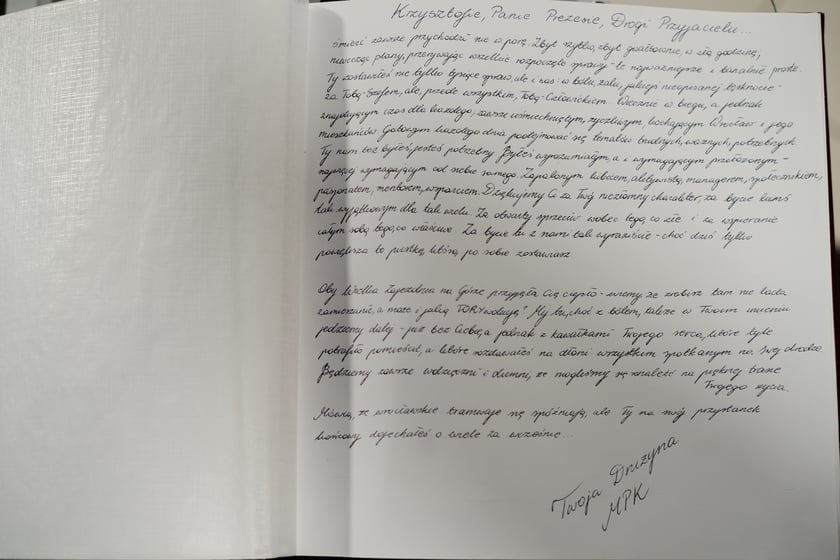 Krzysztofie, Panie Prezesie, Drogi Przyjacielu...
śmierć zawsze przychodzi nie w porę. Zbyt szybko, zbyt gwałtownie, w złą godzinę,
niwecząc plany, przerywając wszelkie rozpoczęte sprawy - te najważniejsze i banalnie proste.
Ty zostawiłeś nie tylko tysiące spraw, ale i nas - w bólu, żalu, jakiejś nieopisanej tęsknocie -
za Tobą - Szefem, ale, przede wszystkim, Tobą - Człowiekiem. Wiecznie w biegu, a jednak
znajdującym czas dla każdego, zawsze uśmiechniętym, życzliwym, kochającym Wrocław i jego
mieszkańców. Gotowym każdego dnia podejmować się tematów trudnych, ważnych, potrzebnych.
Ty nam też byłeś, jesteś potrzebny. Byłeś wyrozumiałym, a i wymagającym przełożonym -
najwięcej wymagającym od siebie samego. Zapalonym kibicem, aktywistą, managerem, społecznikiem,
pasjonatem, mentorem, wsparciem. Dziękujemy Ci za Twój niezłomny charakter, za bycie kimś
tak wyjątkowym dla tak wielu. Za otwarty sprzeciw wobec tego, co złe i za wspieranie
całym sobą tego, co właściwe. Za bycie tu z nami tak wyraziście - choć dziś tylko
powiększa to pustkę, którą po sobie zostawiasz.
Oby Wielka Zajezdnia na Górze przyjęła Cię ciepło - wiemy, że zrobisz tam nie lada
zamieszanie, a może i jakąś TORYwolucję? My tu, choć z bólem, także w Twoim imieniu
jedziemy dalej - już bez Ciebie, a jednak z kawałkami Twojego serca, które tyle
potrafiło pomieścić, a które rozdawałeś na dłoni wszystkim spotkanym na swej drodze.
Będziemy zawsze wdzięczni i dumni, że mogliśmy się znaleźć na pięknej trasie
Twojego życia.
Mówią, że wrocławskie tramwaje się spóźniają, ale Ty na swój przystanek
końcowy dojechałeś o wiele za wcześnie...
Twoja Drużyna
MPK